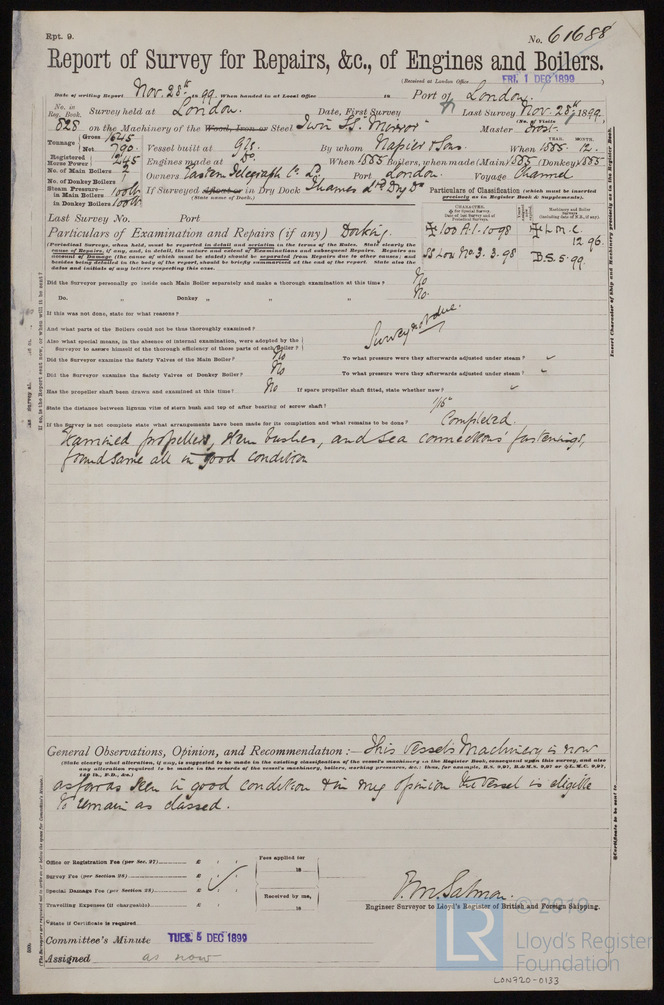 Rpt. 9.
No. 61688
Report of Survey for Repairs, &c., of Engines and Boilers.
(Received at London Office FRI. 1 DEC 1899)
Date of writing Report Nov. 28th 1899 When handed in at Local Office 18 Port of London
No. in Reg. Book. Survey held at London. Date, First Survey Last Survey Nov. 28th 1899
(No. of Visits)
828 on the Machinery of the Wood, Iron or Steel Twin Sc. Mirror Master
Tonnage Gross 1545 Net 790 Vessel built at Gls. By whom Napier & Sons. When 1885 12. YEAR. MONTH.
Registered Horse Power 245 Engines made at Do When 1885 Boilers, when made (Main) 1885 (Donkey) 1885
No. of Main Boilers 2 Owners Eastern Telegraph Co. Ld. Port London. Voyage Channel
No. of Donkey Boilers 1
Steam Pressure in Main Boilers 100 lb If Surveyed Afloat or in Dry Dock Thames Dry Do
in Donkey Boilers 100 lb (State name of Dock.)
Particulars of Classification (which must be inserted precisely as in Register Book & Supplements).
Last Survey No. Port
CHARACTER.
100 A.1. 10.98 L.M.C. 12 96.
SS Lon No. 3. 3. 98 B.S. 5. 99.
Particulars of Examination and Repairs (if any) Docking.
(Periodical Surveys, when held, must be reported in detail and seriatim in the terms of the Rules. State clearly the
cause of Repairs, if any, and, in detail, the nature and extent of Examinations and subsequent Repairs. Repairs on
account of Damage (the cause of which must be stated) should be separated from Repairs due to other causes; and
besides being detailed in the body of the report, should be briefly summarised at the end of the report. State also the
dates and initials of any letters respecting this case.
Did the Surveyor personally go inside each Main Boiler separately and make a thorough examination at this time? No
Do. „ Donkey „ „ „ „ No.
If this was not done, state for what reasons? Survey not due.
And what parts of the Boilers could not be thus thoroughly examined?
Also what special means, in the absence of internal examination, were adopted by the
Surveyor to assure himself of the thorough efficiency of those parts of each Boiler?
Did the Surveyor examine the Safety Valves of the Main Boiler? No To what pressure were they afterwards adjusted under steam? "
Did the Surveyor examine the Safety Valves of Donkey Boiler? No To what pressure were they afterwards adjusted under steam? "
Has the propeller shaft been drawn and examined at this time? No If spare propeller shaft fitted, state whether new? "
State the distance between lignum vitæ of stern bush and top of after bearing of screw shaft? 1/16"
If the Survey is not complete state what arrangements have been made for its completion and what remains to be done? Completed.
Examined propellers, stern bushes, and sea connections' fastenings,
found same all in good condition
General Observations, Opinion, and Recommendation:— This vessel's Machinery is now
(State clearly what alteration, if any, is suggested to be made in the existing classification of the vessel's machinery in the Register Book, consequent upon this survey, and also
any alteration required to be made in the records of the vessel's machinery, boilers, working pressures, &c.: thus, for example, B.S. 9,97, B.&M.S. 9,97 or L.M.C. 9,97,
140 lb., F.D., &c.)
as far as seen in good condition & in my opinion the vessel is eligible
to remain as classed.
Office or Registration Fee (per Sec. 27) £ : : Fees applied for
Survey Fee (per Section 28) £ : : 18
Special Damage Fee (per Section 28) £ : : Received by me,
Travelling Expenses (if chargeable) £ : : 18
P. M. Salmon.
Engineer Surveyor to Lloyd's Register of British and Foreign Shipping.
State if Certificate is required
Committee's Minute TUES. 5 DEC 1899
Assigned as now
LR © 2019
Lloyd's Register
Foundation
LON720-0133